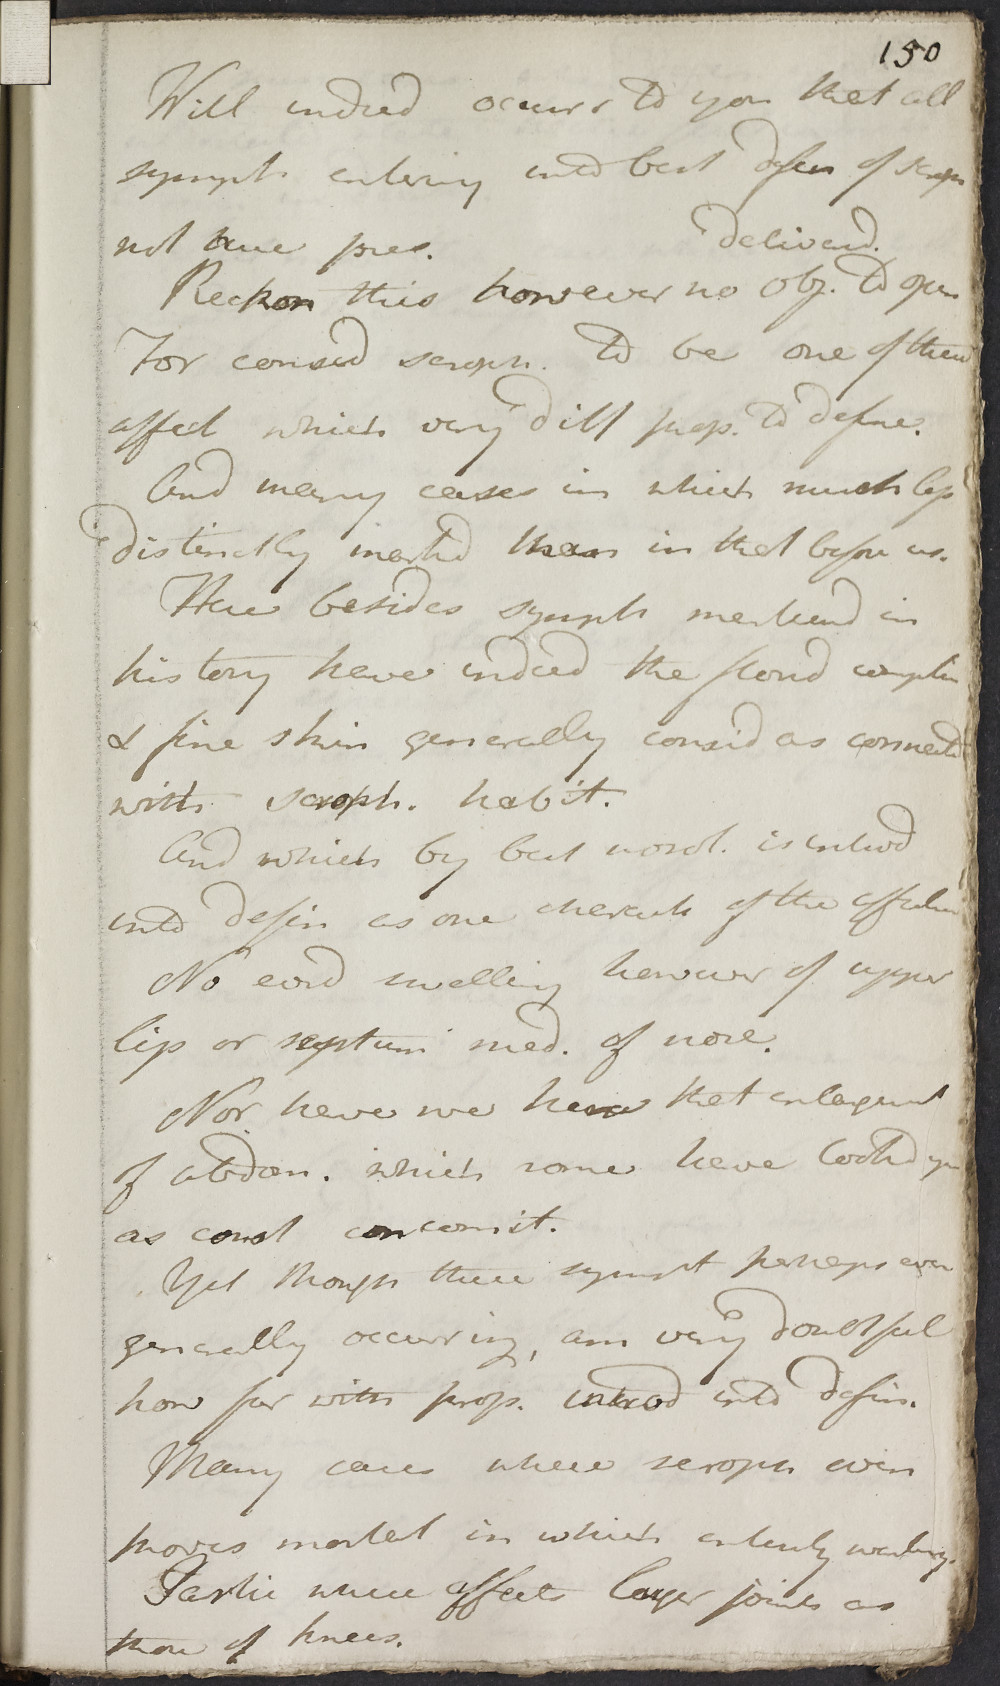 150
Will indeed occurr to you that all
sympts entering into best defin of scroph
not here pres.
delivered.
Reckon this however no obj. to opin
For consid scroph. to be one of those
affect which very diff prop. to define.
And many cases in which much less
distinctly marked than in that before us.
Here besides sympts mentiond in
history have indeed the florid complex
& fine skin generally consid as connected
with scroph. habit.
And which by best nosol. is introd
into defin as one charact of the affection
No evid swelling however of upper
lip or septum med. of nose.
Nor have we here that enlargment
of abdom. which some have lookd upon
as const concomit.
Yet though these sympt perhaps even
generally occurring, am very doubtful
how far with prop. introd into defin.
Many cases where scroph even
proves mortal in which entirely wanting.
Partic where affects larger joints as
those of knees.